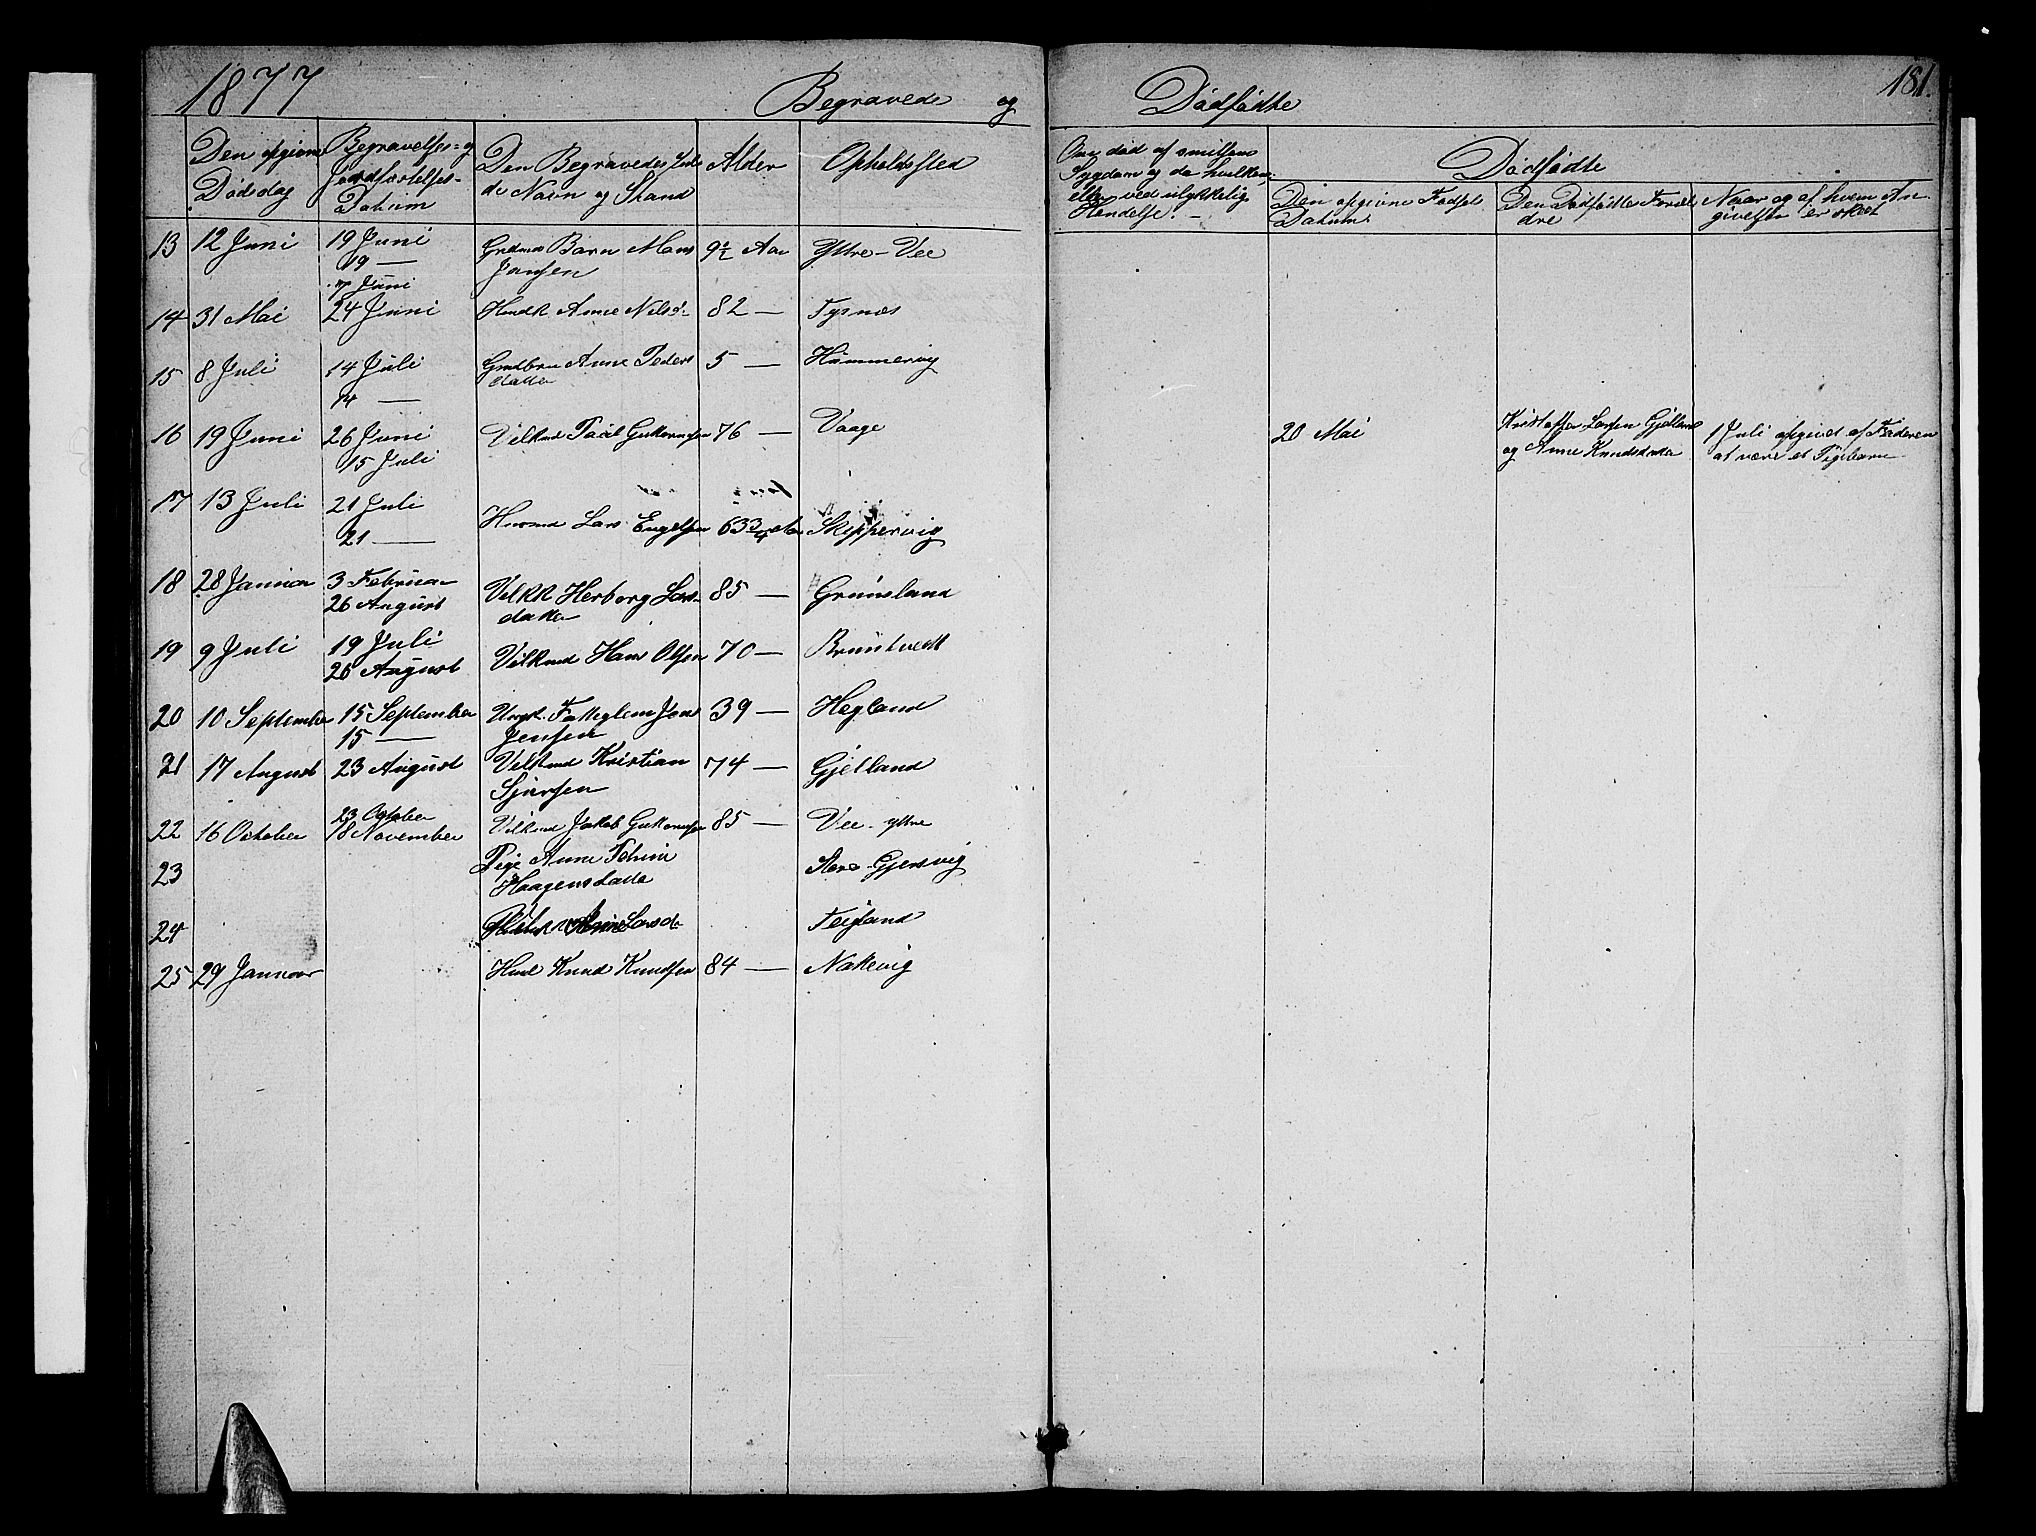 1877 Begravede og Dødfødte 181.
Den opgivne Dødsdag
Begravelses- og Jordfæstelses-Datum
Den Begravedes fulde Navn og Stand
Alder
Opholdssted
Om død af smitsom Sygdom og da hvilken, eller ved ulykkelig Hendelse.
Dødfødte
Den opgivne Fødsels Datum
Den Dødfødtes Forældre
Naar og af hvem Angivelsen er skeet
13 12 Juni 19 Juni Grdmd Barn Mons 9½ Aar Yttre-Vee
19 — Jansen
7 Juni
14 31 Mai 24 Juni Anne Nilsd. 82 — Tysnæs
15 8 Juli 14 Juli Anne Peders 5 — Hammervig
14 — datter
16 19 Juni 26 Juni Vilkmd Paul Guttormsen 76 — Vaage 20 Mai Kristoffer Larsen Gjelland 1 Juli opgivet af Faderen
15 Juli og Anne Knudsdatter at være et Pigebarn
17 13 Juli 21 Juli Husmd Lars Engelsen 63 3/4 Aar Skippervig
21 —
18 28 Januar 3 Februar Vilkk Herborg Lars- 85 — Grønsland
26 August datter
19 9 Juli 19 Juli Vilkmd Hans Olsen 70 — Bruntvedt
26 August
20 10 September 15 September Jens 39 — Hegland
15 — Jensen
21 17 August 23 August Vilkmd Kristian 74 — Gjelland
Sjursen
23 October
22 16 October 18 November Vilkmd Jakob Guttormsen 85 — Vee yttre
23 Pige Anne Haagensdatter Gjersvig
24 Anne Larsd. Teigland
25 29 Januar Knud Knudsen 84 — Nattevig